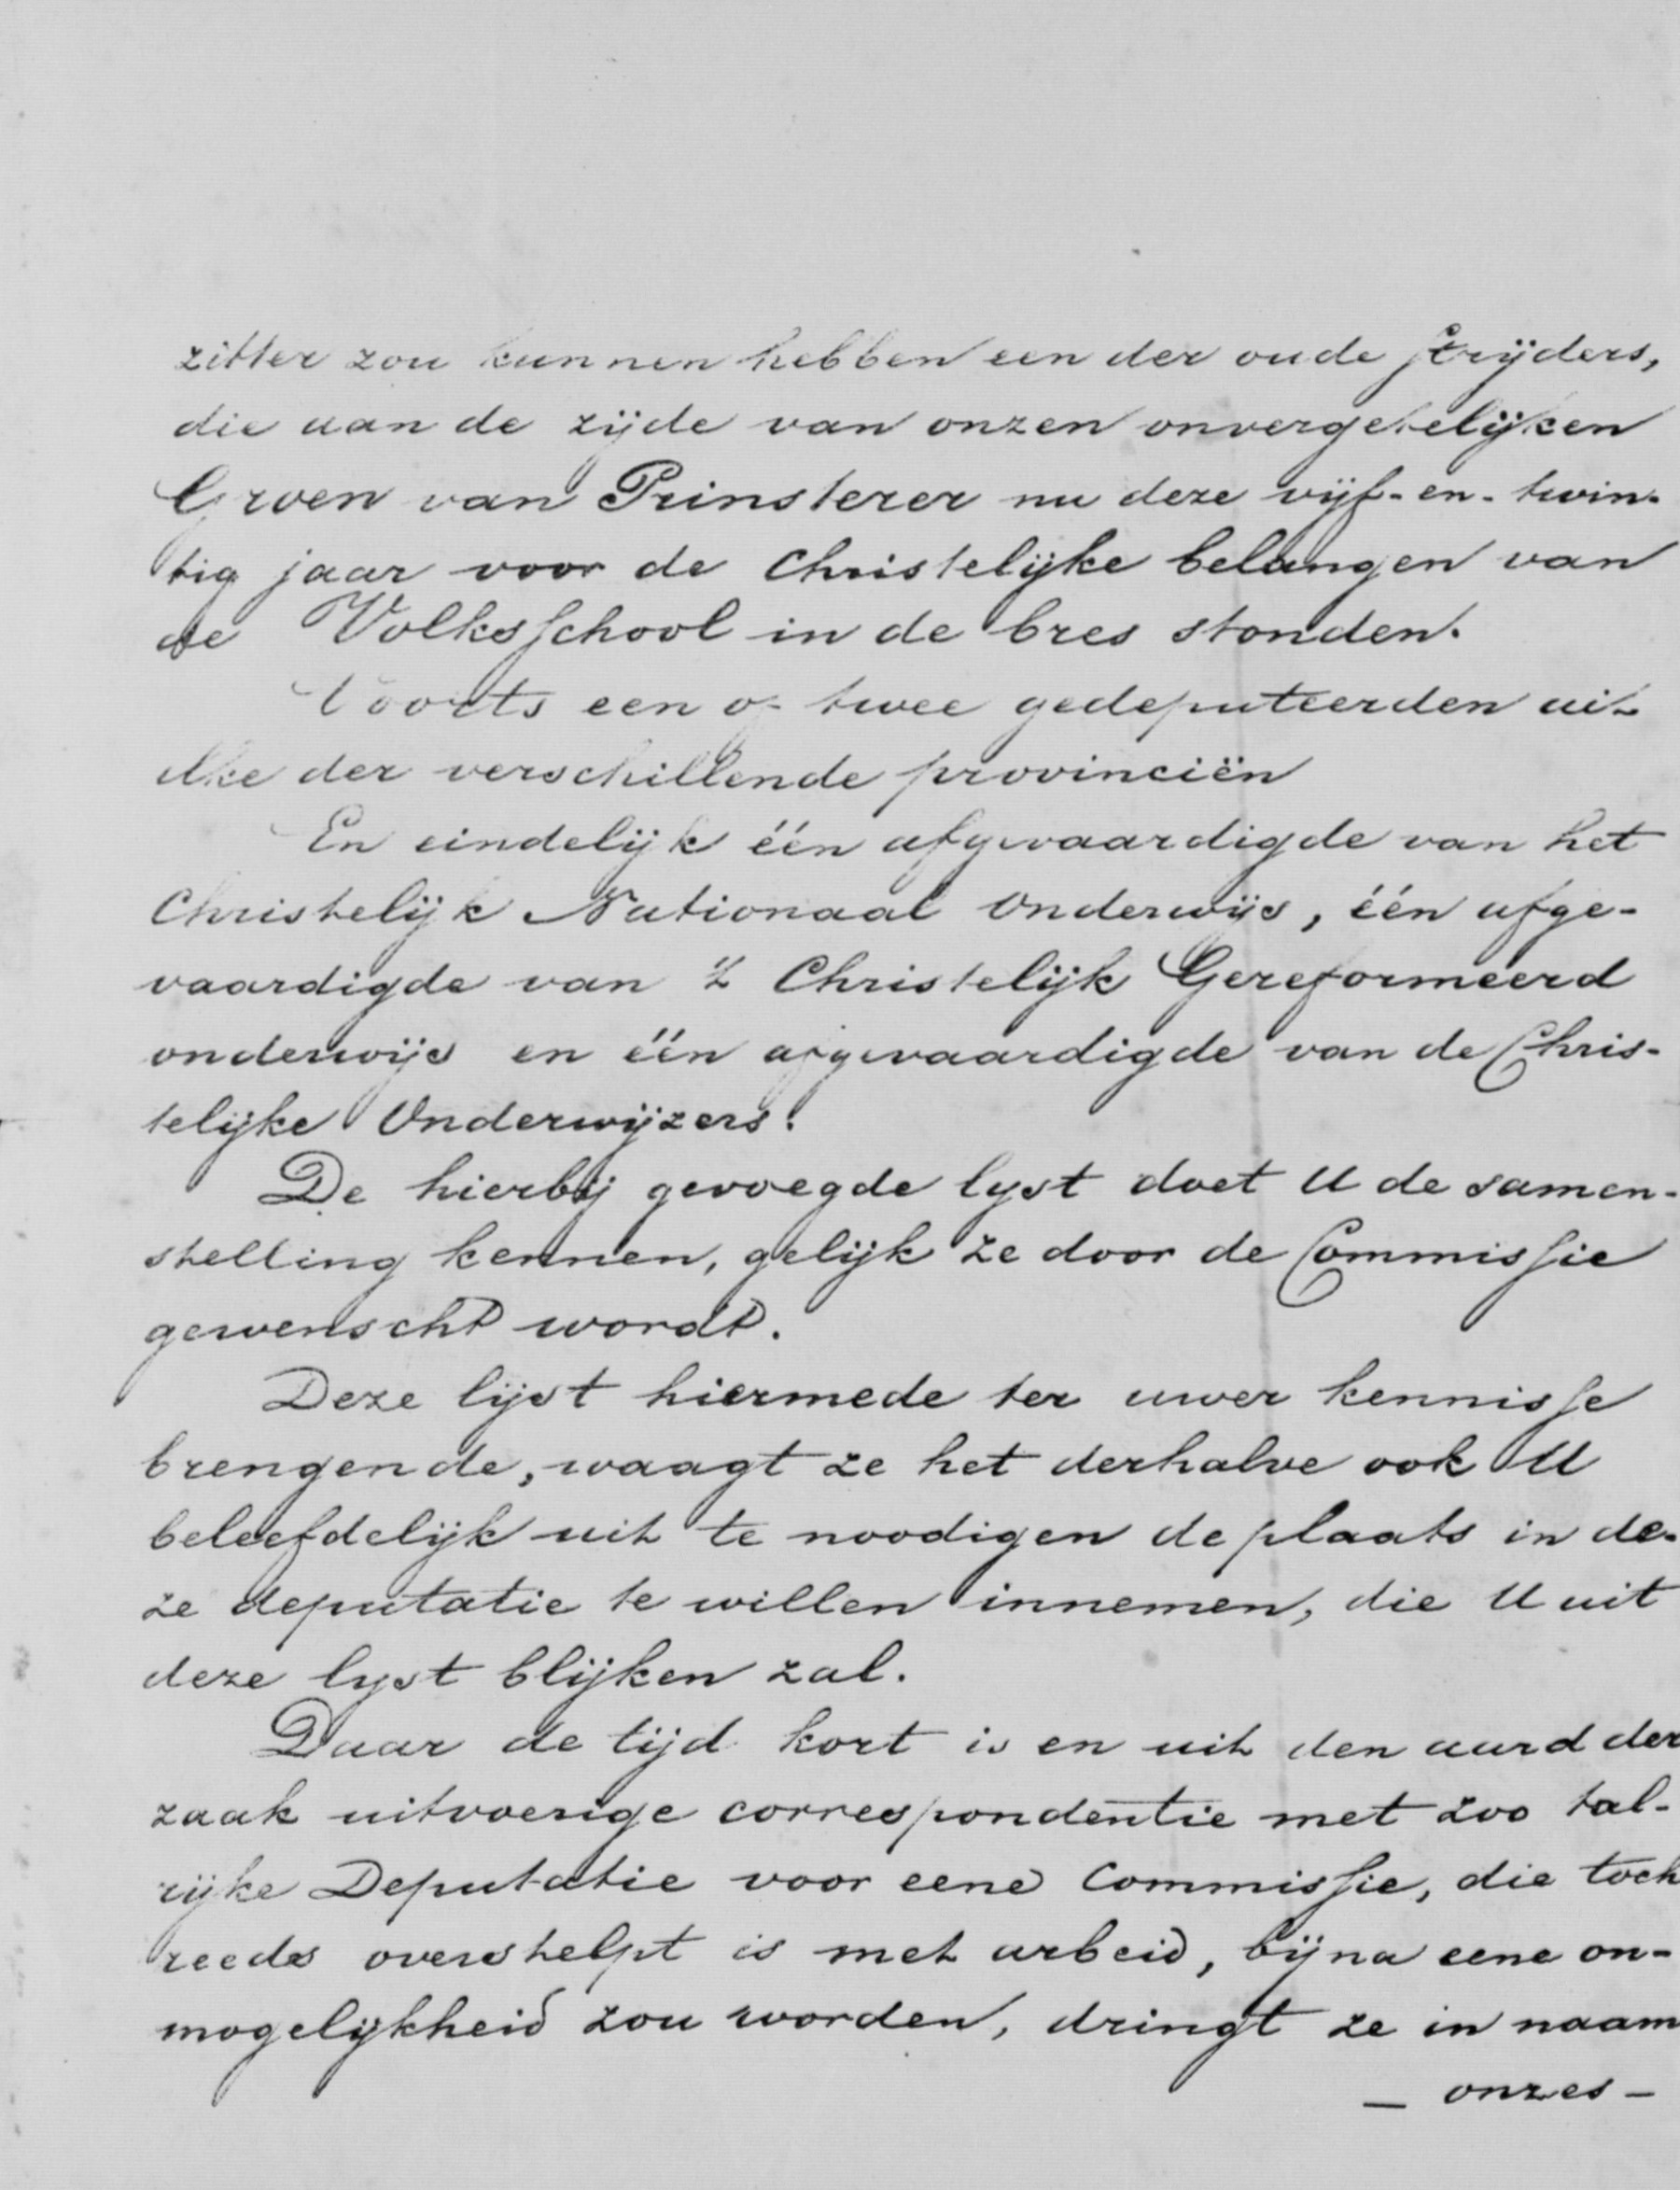 zitter zou kunnen hebben een der oude strijders,
die aan de zijde van onzen onvergetelijken
Groen van Prinsterer nu deze vijf-en-twin-
tig jaar voor de Christelijke belangen van
de Volksschool in de bres stonden.
Voorts een of twee gedeputeerden uit
elke der verschillende provinciën
En eindelijk één afgevaardigde van het
Christelijk Nationaal Onderwijs, één afge-
vaardigde van 't Christelijk Gereformeerd
onderwijs en één afgevaardigde van de Chris-
telijke Onderwijzers.
De hierbij gevoegde lyst doet U de samen-
stelling kennen, gelijk ze door de Commissie
gewenscht wordt.
Deze lijst hiermede ter uwer kennisse
brengende, waagt ze het derhalve ook U
beleefdelijk uit te noodigen de plaats in de-
ze deputatie te willen innemen, die U uit
deze lyst blijken zal.
Daar de tijd kort is en uit den aard der
zaak uitvoerige correspondentie met zoo tal-
rijke Deputatie voor eene Commissie, die toch
reeds overstelpt is met arbeid, bijna eene on-
mogelijkheid zou worden, dringt ze in naam
_ onzes -